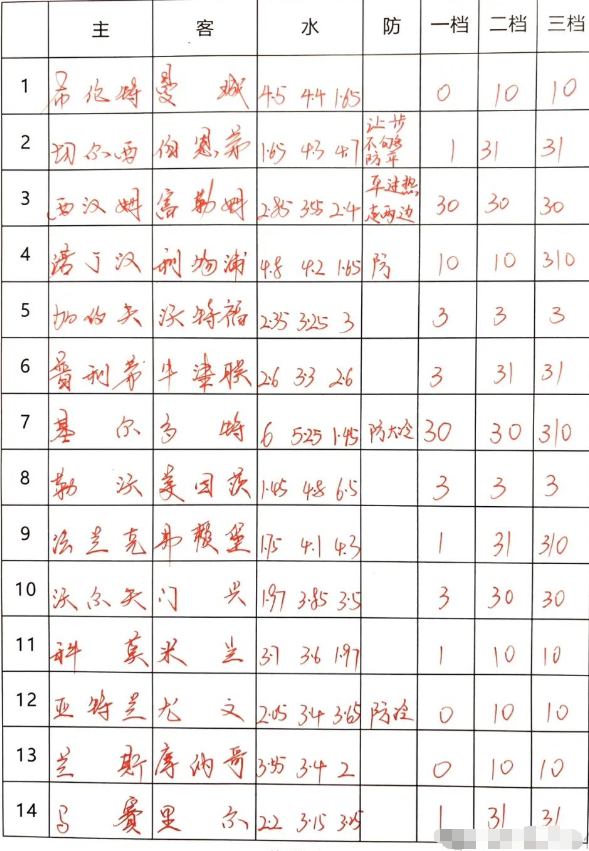 主 客 水 防 一档 二档 三档
1 布伦特 曼城 4.5 4.4 1.65 0 10 10
2 切尔西 伯恩茅 1.65 4.3 4.7 让步不够防平 1 31 31
3 西汉姆 富勒姆 2.85 3.55 2.4 车过热走两边 30 30 30
4 诺丁汉 利物浦 4.8 4.2 1.65 防 10 10 310
5 加的夫 沃特福 2.35 3.25 3 3 3 3
6 普利茅 牛津联 2.6 3.3 2.6 3 31 31
7 基尔 多特 6 5.25 1.45 防大冷 30 30 310
8 勒沃 美因茨 1.45 4.8 6.5 3 3 3
9 法兰克 弗赖堡 1.75 4.1 4.3 1 31 310
10 沃尔夫 门兴 1.97 3.85 3.5 3 30 30
11 科莫 米兰 3.7 3.6 1.97 1 10 10
12 亚特兰 尤文 2.05 3.4 3.65 防冷 0 10 10
13 兰斯 摩纳哥 3.55 3.4 2 0 10 10
14 马赛 里尔 2.2 3.15 3.25 1 31 31